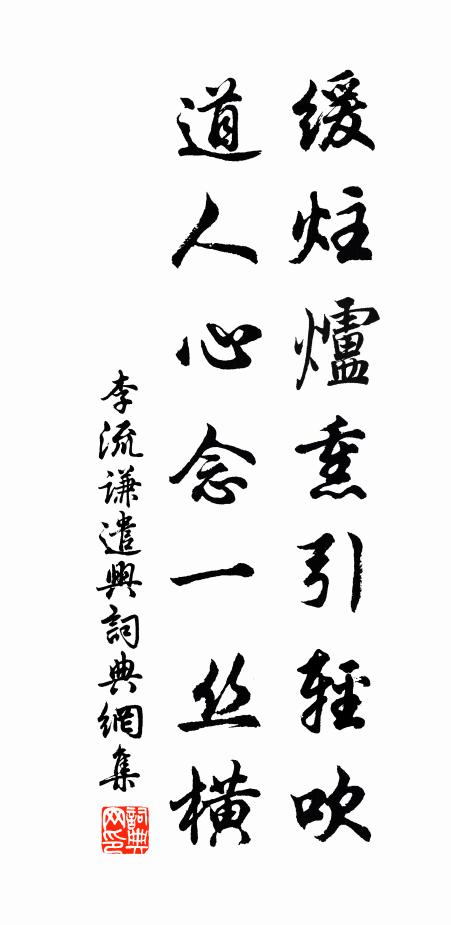 緩炷爐熏引輕吹
道人心念一丝橫
李流谦遣興詞典網集
詞典网印